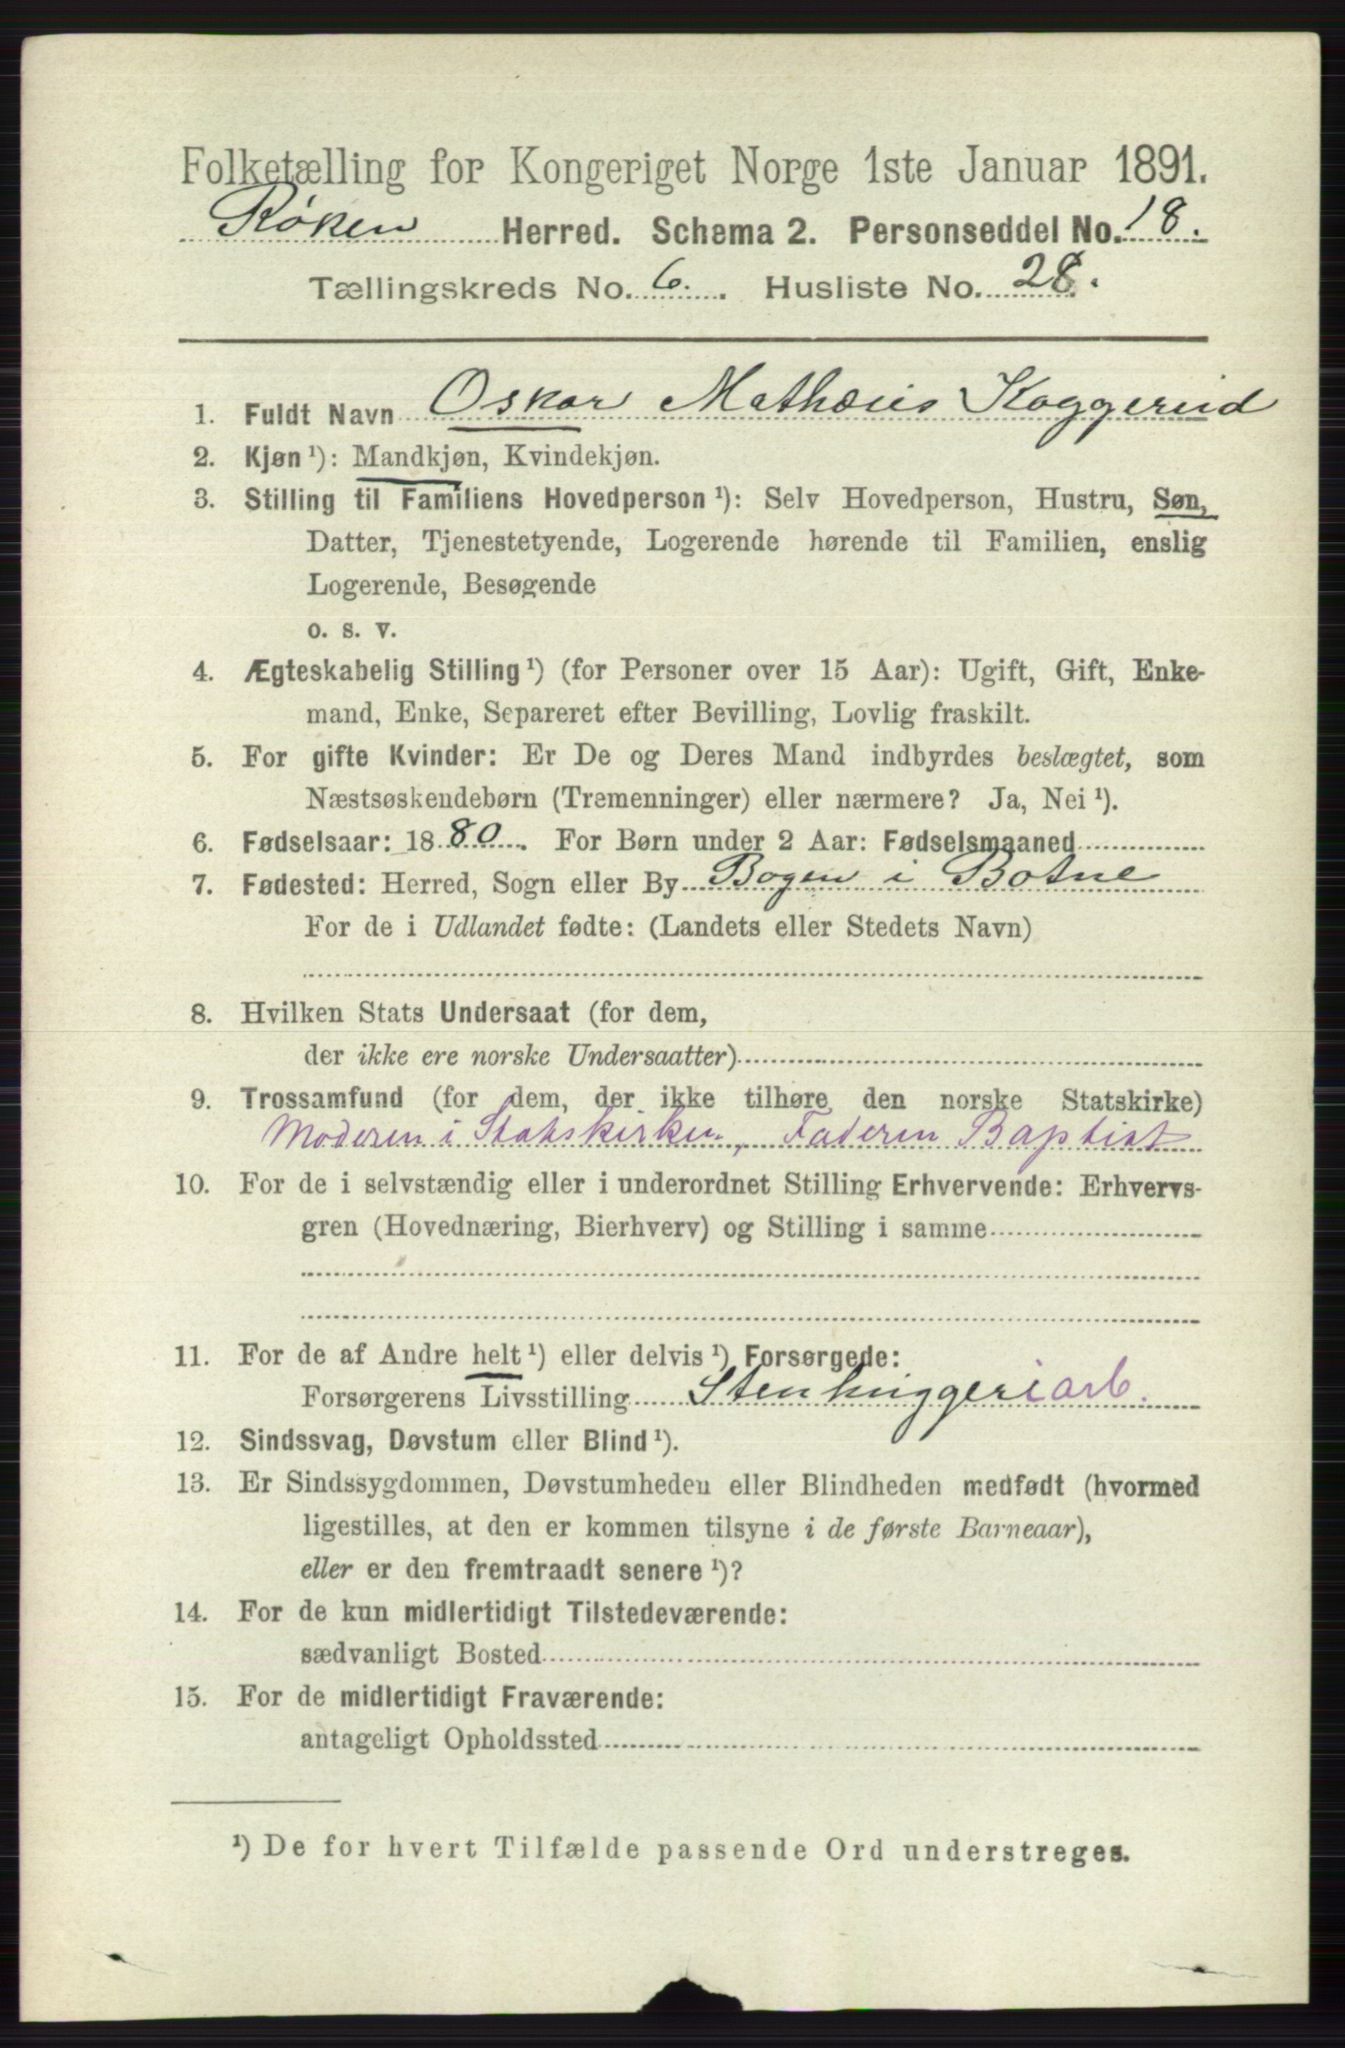 Folketælling for Kongeriget Norge 1ste Januar 1891.
Røken Herred. Schema 2. Personseddel No. 18.
Tællingskreds No. 6. Husliste No. 28.
1. Fuldt Navn Oskar Mathæus Koggerud
2. Kjøn ¹): Mandkjøn, Kvindekjøn.
3. Stilling til Familiens Hovedperson ¹): Selv Hovedperson, Hustru, Søn,
Datter, Tjenestetyende, Logerende hørende til Familien, enslig
Logerende, Besøgende
o. s. v.
4. Ægteskabelig Stilling ¹) (for Personer over 15 Aar): Ugift, Gift, Enke-
mand, Enke, Separeret efter Bevilling, Lovlig fraskilt.
5. For gifte Kvinder: Er De og Deres Mand indbyrdes beslægtet, som
Næstsøskendebørn (Tremenninger) eller nærmere? Ja, Nei ¹).
6. Fødselsaar: 1880. For Børn under 2 Aar: Fødselsmaaned
7. Fødested: Herred, Sogn eller By Bogen i Botne
For de i Udlandet fødte: (Landets eller Stedets Navn)
8. Hvilken Stats Undersaat (for dem,
der ikke ere norske Undersaatter)
9. Trossamfund (for dem, der ikke tilhøre den norske Statskirke)
Moderen i Statskirken, Faderen Baptist
10. For de i selvstændig eller i underordnet Stilling Erhvervende: Erhvervs-
gren (Hovednæring, Bierhverv) og Stilling i samme
11. For de af Andre helt ¹) eller delvis ¹) Forsørgede:
Forsørgerens Livsstilling Stenhuggeriarb.
12. Sindssvag, Døvstum eller Blind ¹).
13. Er Sindssygdommen, Døvstumheden eller Blindheden medfødt (hvormed
ligestilles, at den er kommen tilsyne i de første Barneaar),
eller er den fremtraadt senere ¹)?
14. For de kun midlertidigt Tilstedeværende:
sædvanligt Bosted
15. For de midlertidigt Fraværende:
antageligt Opholdssted
¹) De for hvert Tilfælde passende Ord understreges.